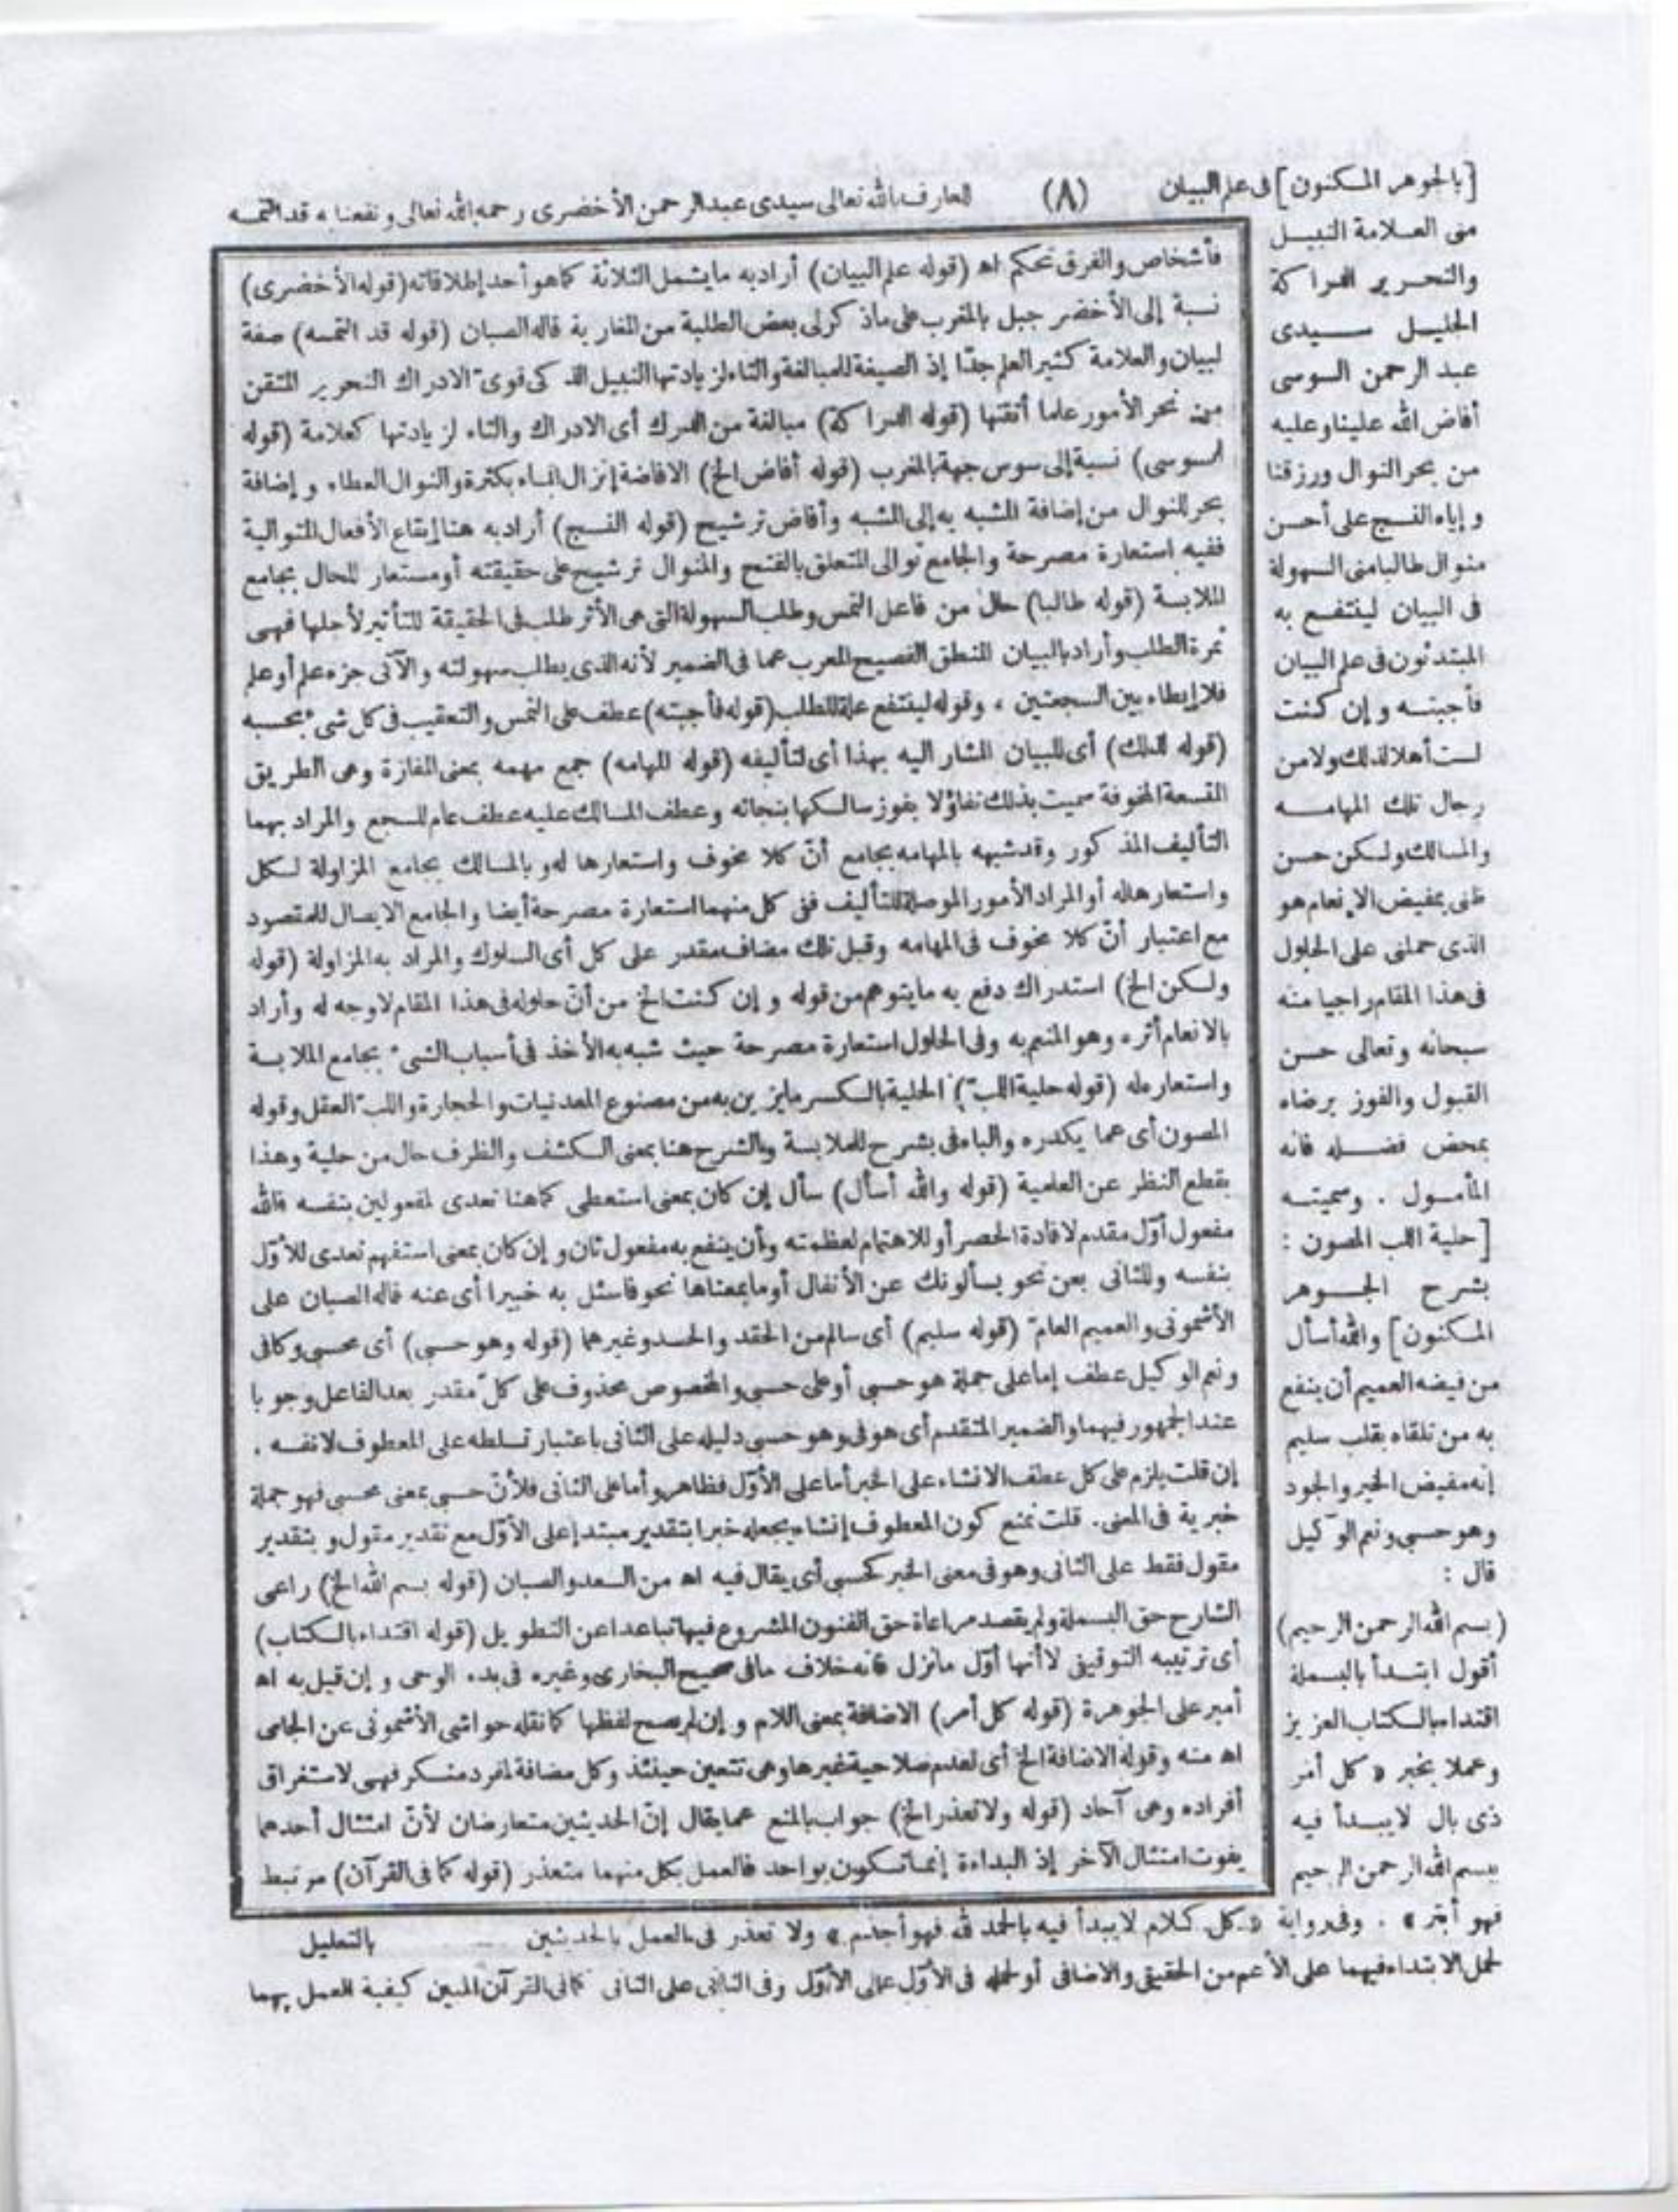 [بالجوهر المكنون] فى علم البيان (٨) العارف بالله تعالى سيدى عبد الرحمن الأخضرى رحمه الله تعالى ونفعنا به قد التمسه
منى العلامة النبيل
والتحرير الدراكة
الجليل سيدى
عبد الرحمن السوسى
أفاض الله علينا وعليه
من بحر النوال ورزقنا
وإياه النسج على أحسن
منوال طالبا منى السهولة
فى البيان لينتفع به
المبتدئون فى علم البيان
فأجبته وإن كنت
لست أهلا لذلك ولا من
رجال تلك المهامه
والمسالك ولكن حسن
ظنى بمفيض الإنعام هو
الذى حملنى على الحلول
فى هذا المقام راجيا منه
سبحانه وتعالى حسن
القبول والفوز برضاه
بمحض فضله فانه
المأمول . وسميته
[حلية اللب المصون :
بشرح الجوهر
المكنون] والله أسأل
من فيضه العميم أن ينفع
به من تلقاه بقلب سليم
إنه مفيض الخير والجود
وهو حسبى ونعم الوكيل
قال :
(بسم الله الرحمن الرحيم)
أقول ابتدأ بالبسملة
اقتداء بالكتاب العزيز
وعملا بخبر «كل أمر
ذى بال لا يبدأ فيه
ببسم الله الرحمن الرحيم
فأشخاص والفرق تحكم اه (قوله علم البيان) أراد به ما يشمل الثلاثة كما هو أحد إطلاقاته (قوله الأخضرى)
نسبة إلى الأخضر جبل بالمغرب على ما ذكر لى بعض الطلبة من المغاربة قاله الصبان (قوله قد التمسه) صفة
لبيان والعلامة كثير العلم جدّا إذ الصيغة للمبالغة والتاء لزيادتها النبيل الذكى قوىّ الادراك النحرير المتقن
من نحر الأمور علما أتقنها (قوله الدراكة) مبالغة من الدرك أى الادراك والتاء لزيادتها كعلامة (قوله
السوسى) نسبة إلى سوس جهة بالمغرب (قوله أفاض الخ) الافاضة إنزال الماء بكثرة والنوال العطاء وإضافة
بحر للنوال من إضافة المشبه به إلى المشبه وأفاض ترشيح (قوله النسج) أراد به هنا إيقاع الأفعال المتوالية
ففيه استعارة مصرحة والجامع توالى المتعلق بالفتح والمنوال ترشيح على حقيقته أو مستعار للحال بجامع
الملابسة (قوله طالبا) حال من فاعل التمس وطلب السهولة التى هى الأثر طلب فى الحقيقة للتأثير لأجلها فهى
ثمرة الطلب وأراد بالبيان المنطق الفصيح المعرب عما فى الضمير لأنه الذى يطلب سهولته والآتى جزء علم أو علم
فلا إيطاء بين السجعتين ، وقوله لينتفع علة للطلب (قوله فأجبته) عطف على التمس والتعقيب فى كل شىء بحسبه
(قوله لذلك) أى للبيان المشار اليه بهذا أى لتأليفه (قوله المهامه) جمع مهمه بمعنى المفازة وهى الطريق
المتسعة المخوفة سميت بذلك تفاؤلا بفوز سالكها بنجاته وعطف المسالك عليه عطف عام للسجع والمراد بهما
التأليف المذكور وقد شبهه بالمهامه بجامع أنّ كلا مخوف واستعارها له وبالمسالك بجامع المزاولة لكل
واستعارها له أو المراد الأمور الموصلة للتأليف ففى كل منهما استعارة مصرحة أيضا والجامع الايصال للمقصود
مع اعتبار أنّ كلا مخوف فى المهامه وقبل تلك مضاف مقدر على كل أى السلوك والمراد به المزاولة (قوله
ولكن الخ) استدراك دفع به ما يتوهم من قوله وإن كنت الخ من أنّ حلوله فى هذا المقام لا وجه له وأراد
بالانعام أثره وهو المنعم به وفى الحلول استعارة مصرحة حيث شبه به الأخذ فى أسباب الشىء بجامع الملابسة
واستعار له (قوله حلية اللب) الحلية بالكسر ما يزين به من مصنوع المعدنيات والحجارة واللبّ العقل وقوله
المصون أى عما يكدره والباء فى بشرح للملابسة والشرح هنا بمعنى الكشف والظرف حال من حلية وهذا
بقطع النظر عن العلمية (قوله والله أسأل) سأل إن كان بمعنى استعطى كما هنا تعدى لمفعولين بنفسه فالله
مفعول أوّل مقدم لافادة الحصر أو للاهتمام لعظمته وأن ينفع به مفعول ثان وإن كان بمعنى استفهم تعدى للأوّل
بنفسه وللثانى بعن نحو يسألونك عن الأنفال أو ما بمعناها نحو فاسئل به خبيرا أى عنه قاله الصبان على
الأشمونى والعميم العامّ (قوله سليم) أى سالم من الحقد والحسد وغيرهما (قوله وهو حسبى) أى محسبى وكافى
ونعم الوكيل عطف إما على جملة هو حسبى أو على حسبى والمخصوص محذوف على كلّ مقدر بعد الفاعل وجوبا
عند الجمهور فيهما والضمير المتقدم أى هو فى وهو حسبى دليله على الثانى باعتبار تسلطه على المعطوف لا نفسه .
إن قلت يلزم على كل عطف الانشاء على الخبر أما على الأوّل فظاهر وأما على الثانى فلأنّ حسبى بمعنى محسبى فهو جملة
خبرية فى المعنى . قلت نمنع كون المعطوف إنشاء بجعله خبرا بتقدير مبتدإ على الأوّل مع تقدير مقول وبتقدير
مقول فقط على الثانى وهو فى معنى الخبر كحسبى أى يقال فيه اه من السعد والصبان (قوله بسم الله الخ) راعى
الشارح حق البسملة ولم يقصد مراعاة حق الفنون المشروع فيها تباعدا عن التطويل (قوله اقتداء بالكتاب)
أى ترتيبه التوقيفى لا أنها أوّل ما نزل فانه خلاف ما فى صحيح البخارى وغيره فى بدء الوحى وإن قيل به اه
أمير على الجوهرة (قوله كل أمر) الاضافة بمعنى اللام وإن لم يصح لفظها كما نقله حواشى الأشمونى عن الجامى
اه منه وقوله الاضافة الخ أى لعدم صلاحية غيرها وهى تتعين حينئذ وكل مضافة لمفرد منكر فهى لاستغراق
أفراده وهى آحاد (قوله ولا تعذر الخ) جواب بالمنع عما يقال إنّ الحديثين متعارضان لأنّ امتثال أحدهما
يفوت امتثال الآخر إذ البداءة إنما تكون بواحد فالعمل بكل منهما متعذر (قوله كما فى القرآن) مرتبط
بالتعليل
فهو أبتر» . وفى رواية «كل كلام لا يبدأ فيه بالحمد لله فهو أجذم» ولا تعذر فى العمل بالحديثين
لحمل الابتداء فيهما على الأعم من الحقيقى والاضافى أو لحمله فى الأوّل على الأوّل وفى الثانى على الثانى كما فى القرآن المبين كيفية العمل بهما